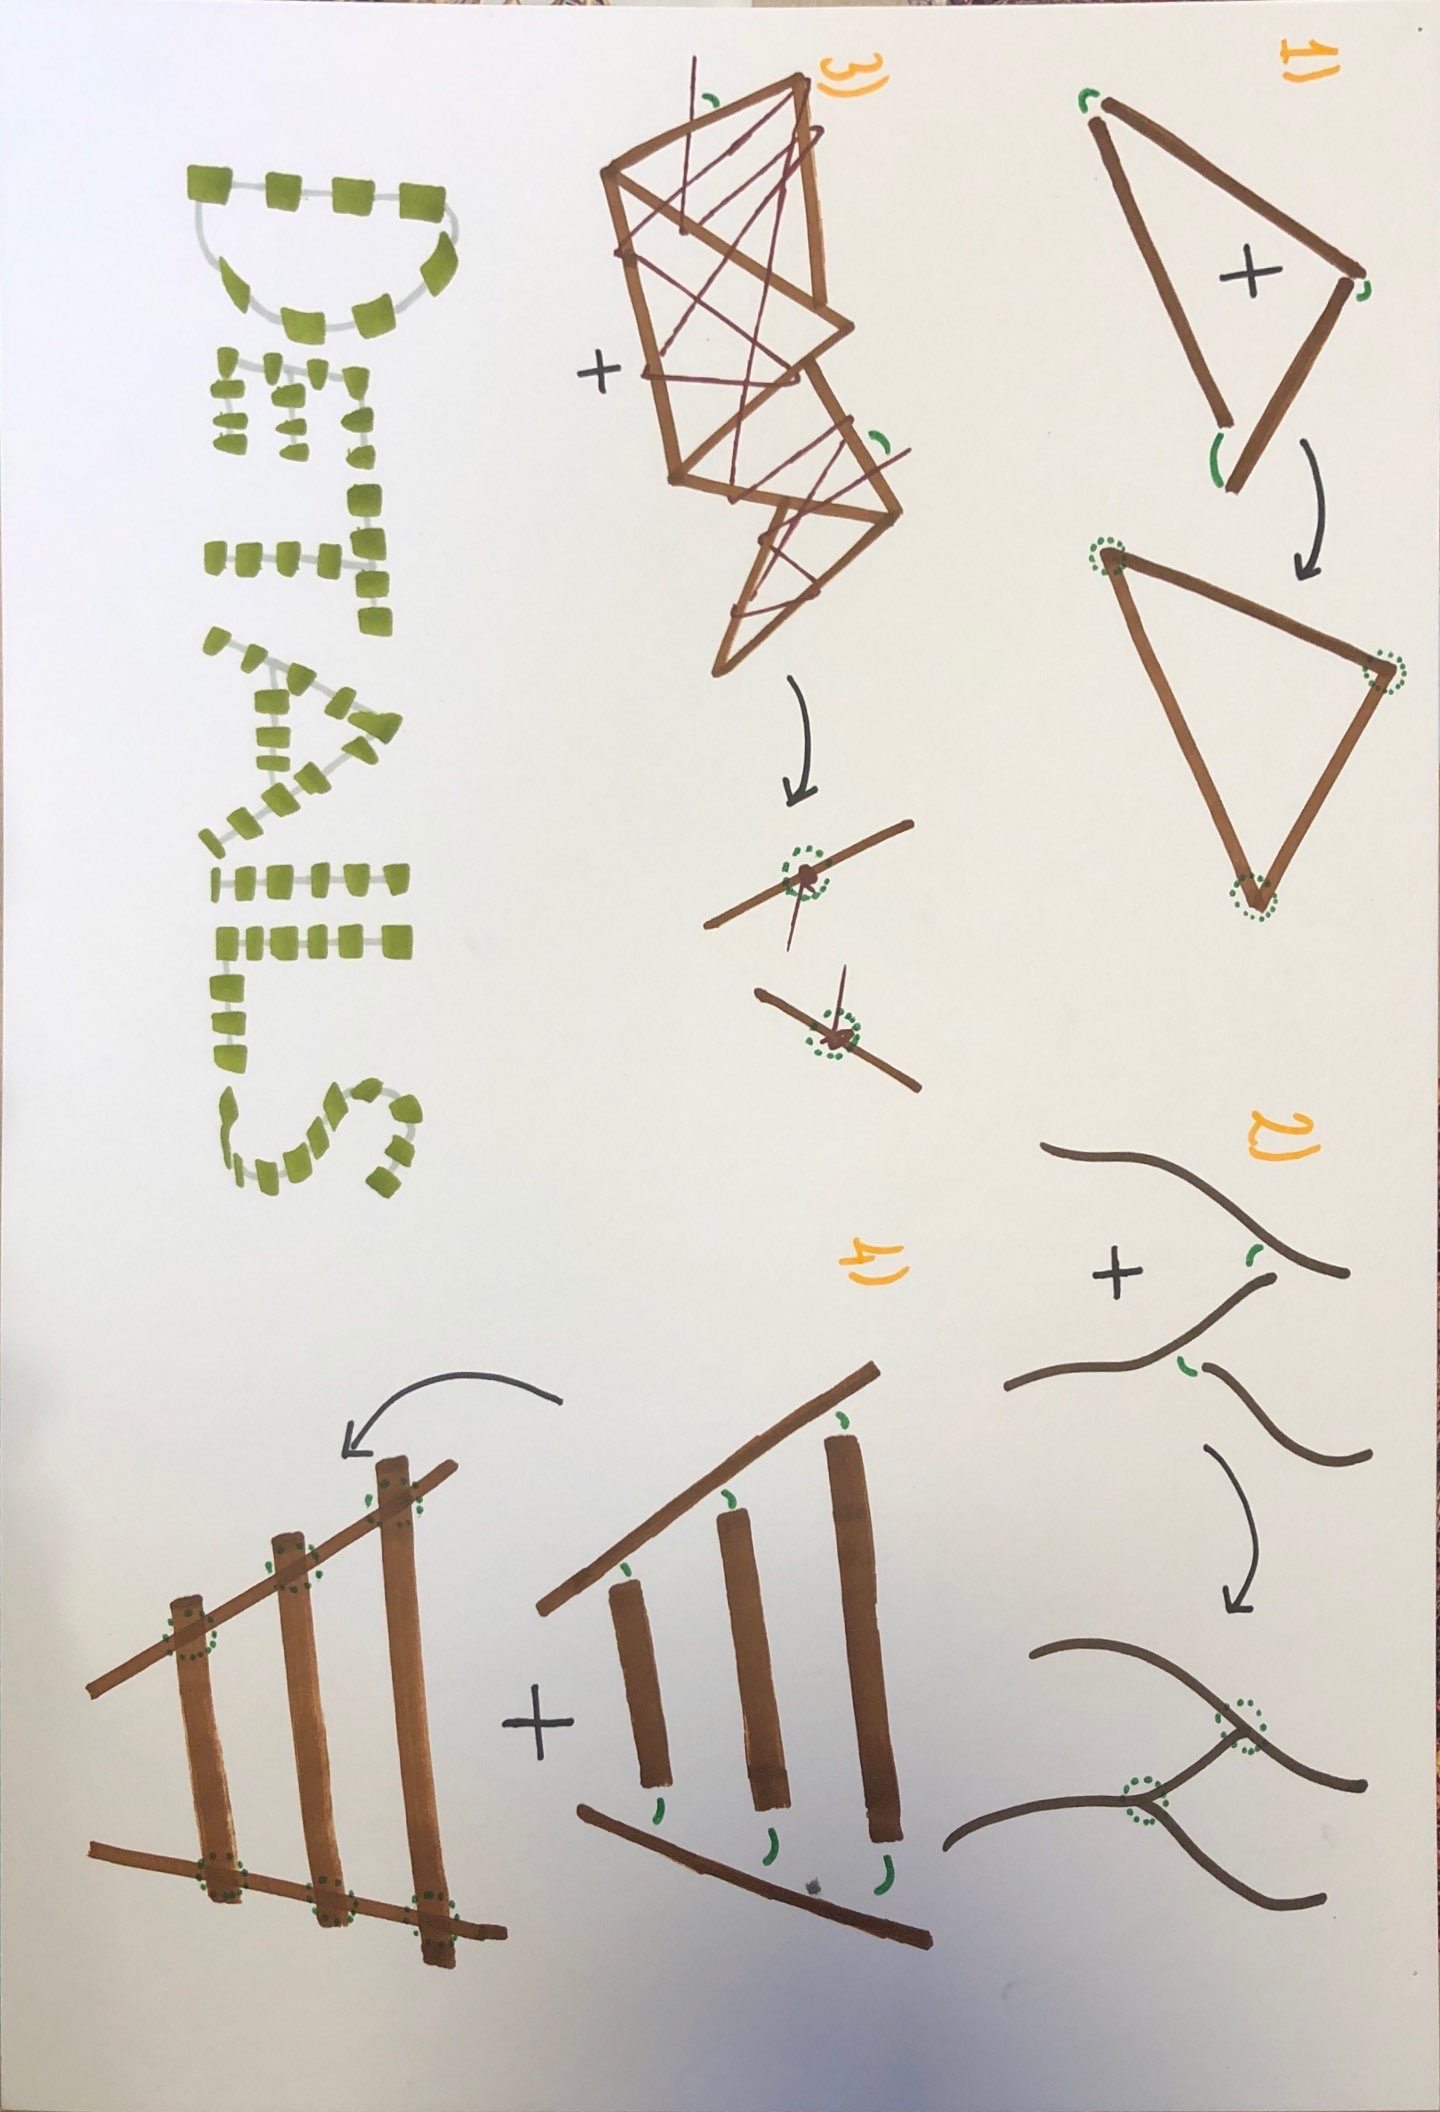 1)
2)
3)
4)
DETAILS